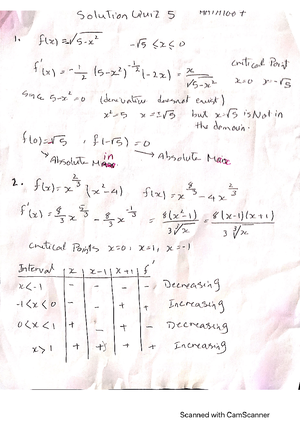 Solution Quiz 5
1. f(x)=-√5-x² -√5 ≤ x ≤ 0
f'(x)=-1/2 (5-x²)^-1/2 (-2x) = x/√5-x² critical Point x=0 x=-√5
Since 5-x²=0 (derivative doesnot exist)
x²=5 x=±√5 but x=√5 is Not in the domain.
f(0)=-√5, f(-√5)=0
Absolute Min Absolute Max
2. f(x)=x^2/3 (x²-4) f(x)=x^8/3-4x^2/3
f'(x)=8/3 x^5/3 - 8/3 x^-1/3 = 8(x²-1)/3∛x = 8(x-1)(x+1)/3∛x
critical Points x=0, x=1, x=-1
Interval x x-1 x+1 f'
x<-1 - - - - Decreasing
-1<x<0 - - + + Increasing
0<x<1 + - + - Decreasing
x>1 + + + + Increasing
Scanned with CamScanner